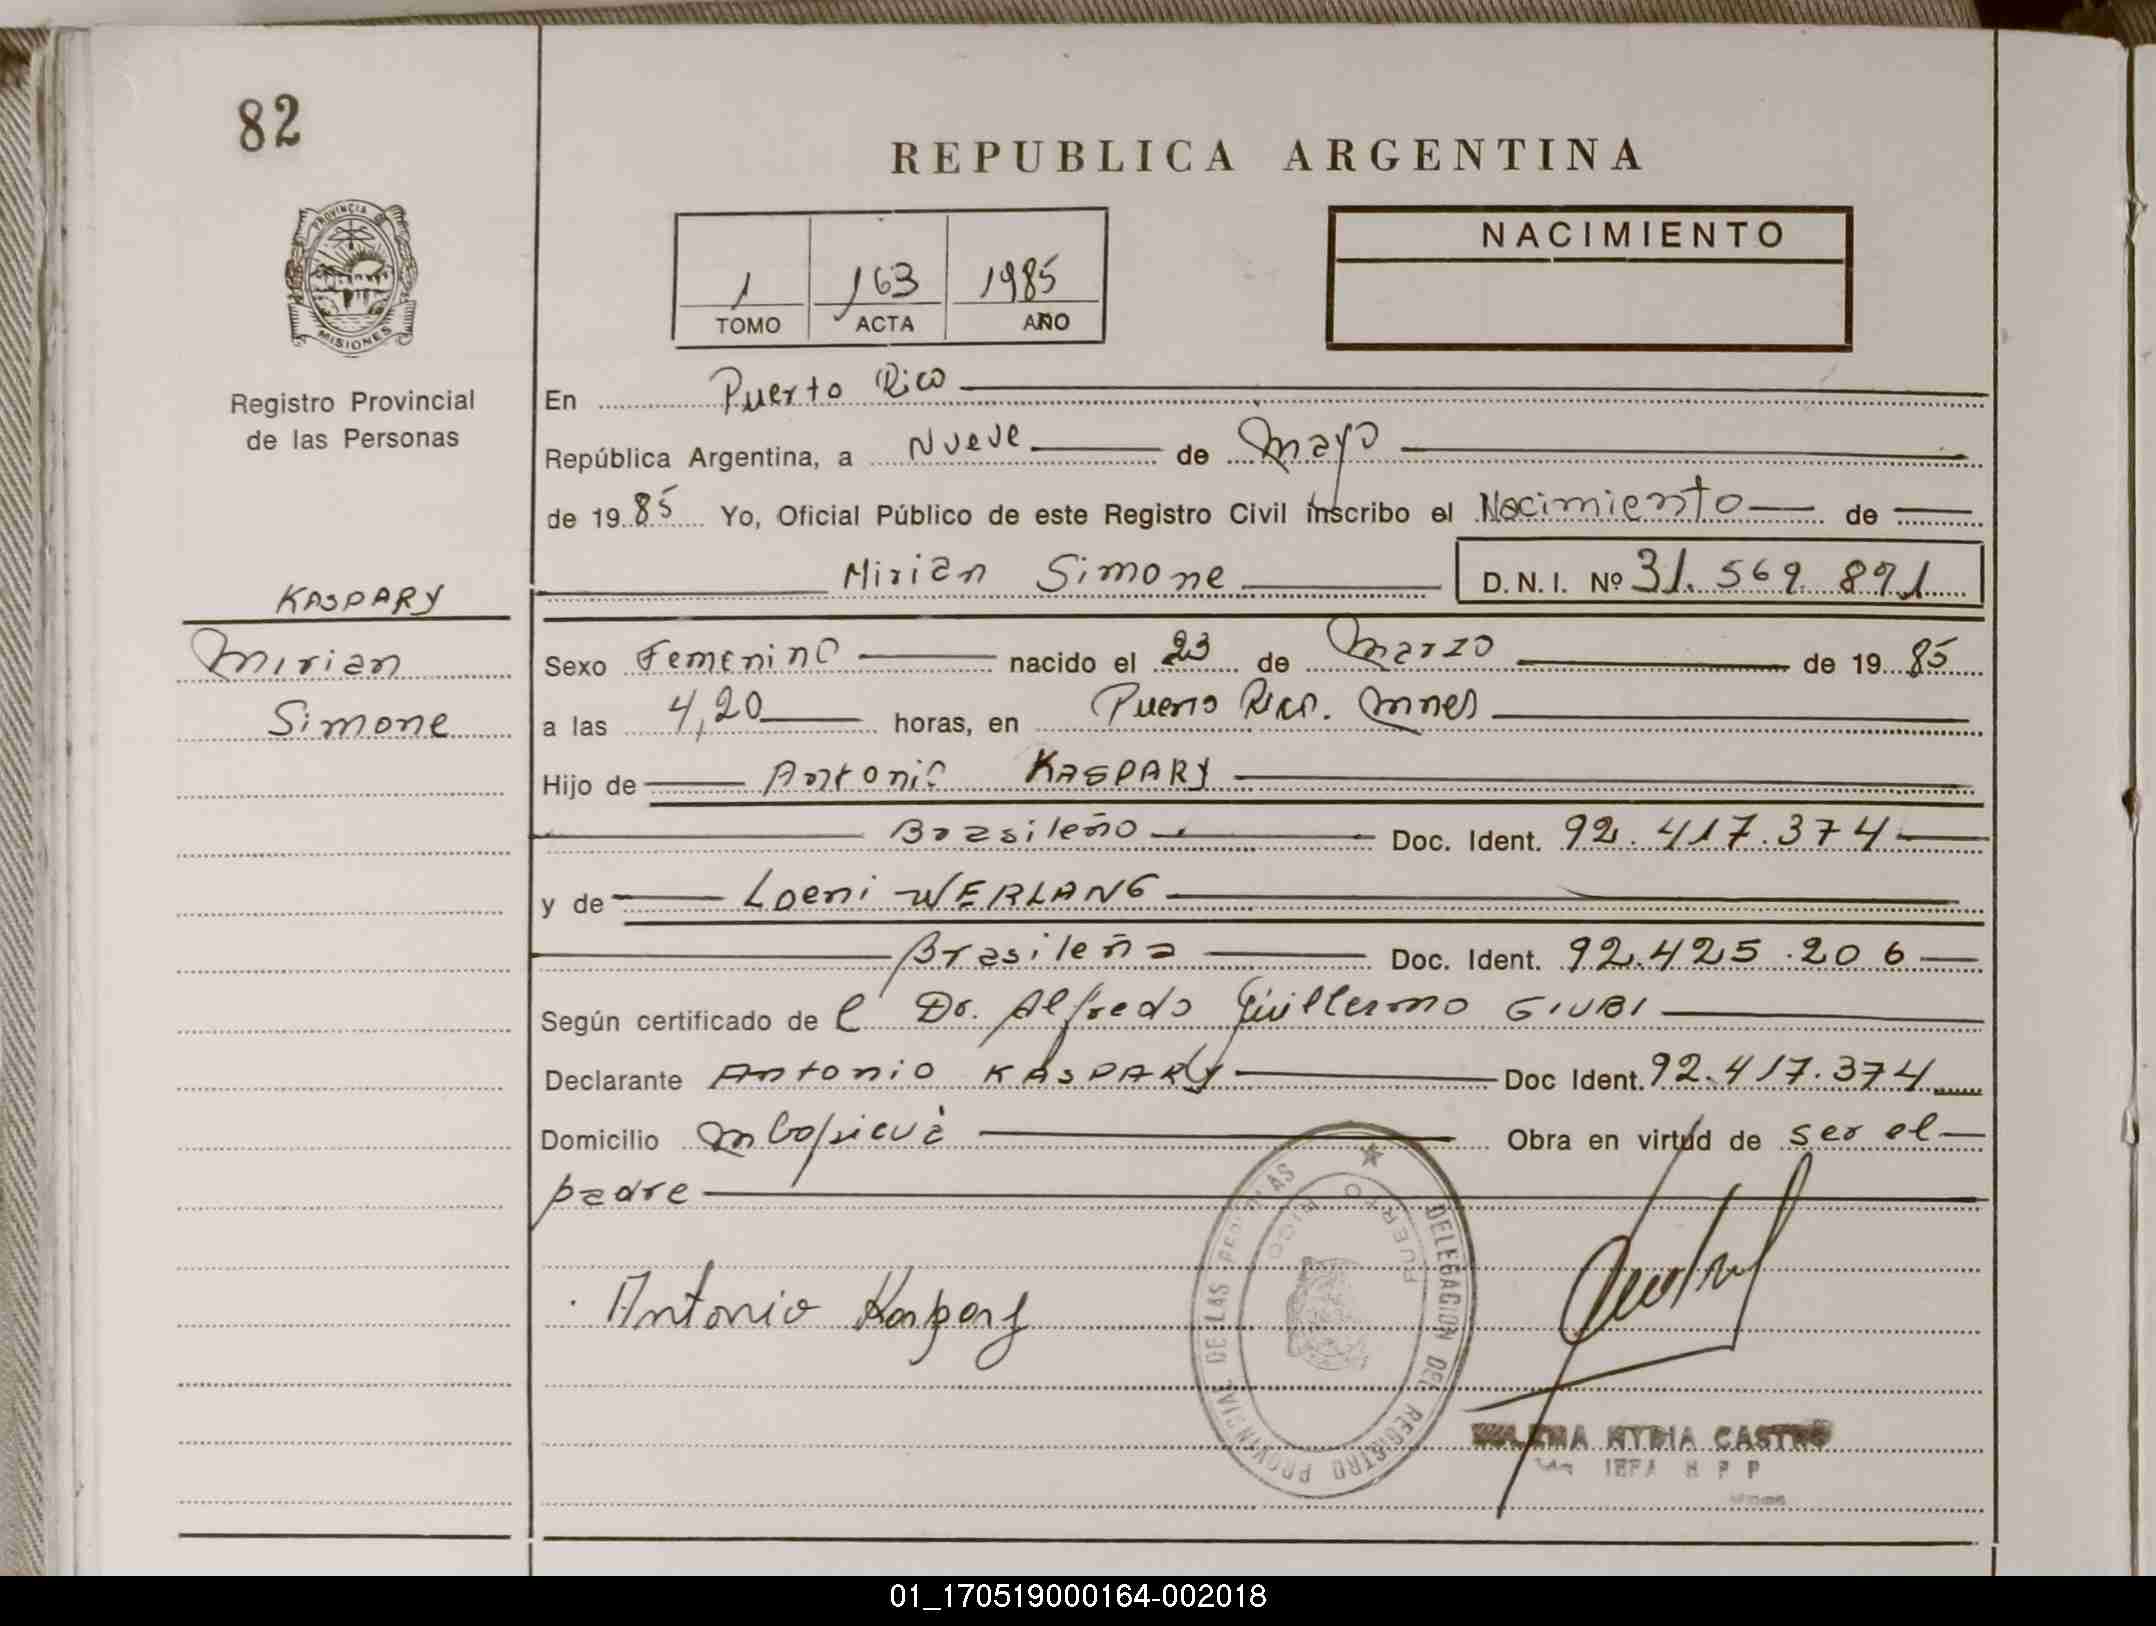 82
REPUBLICA ARGENTINA
PROVINCIA DE
MISIONES
1 163 1985
TOMO ACTA AÑO
NACIMIENTO
Registro Provincial
de las Personas
En Puerto Rico
República Argentina, a Nueve de Mayo
de 1985 Yo, Oficial Público de este Registro Civil inscribo el Nacimiento de
Mirian Simone D.N.I. Nº 31.569.891
KASPARY
Mirian
Simone
Sexo Femenino nacido el 23 de Marzo de 1985
a las 4,20 horas, en Puerto Rico. Mnes
Hijo de Antonio KASPARY
Brasileño Doc. Ident. 92.417.374
y de Loeni WERLANG
Brasileña Doc. Ident. 92.425.206
Según certificado de l Dr. Alfredo Guillermo GIUBI
Declarante Antonio KASPARY Doc Ident. 92.417.374
Domicilio Mbopicuá Obra en virtud de ser el
padre
Antonio Kaspary
DELEGACION DEL REGISTRO PROVINCIAL DE LAS PERSONAS
PUERTO RICO
CASTRO
01_170519000164-002018